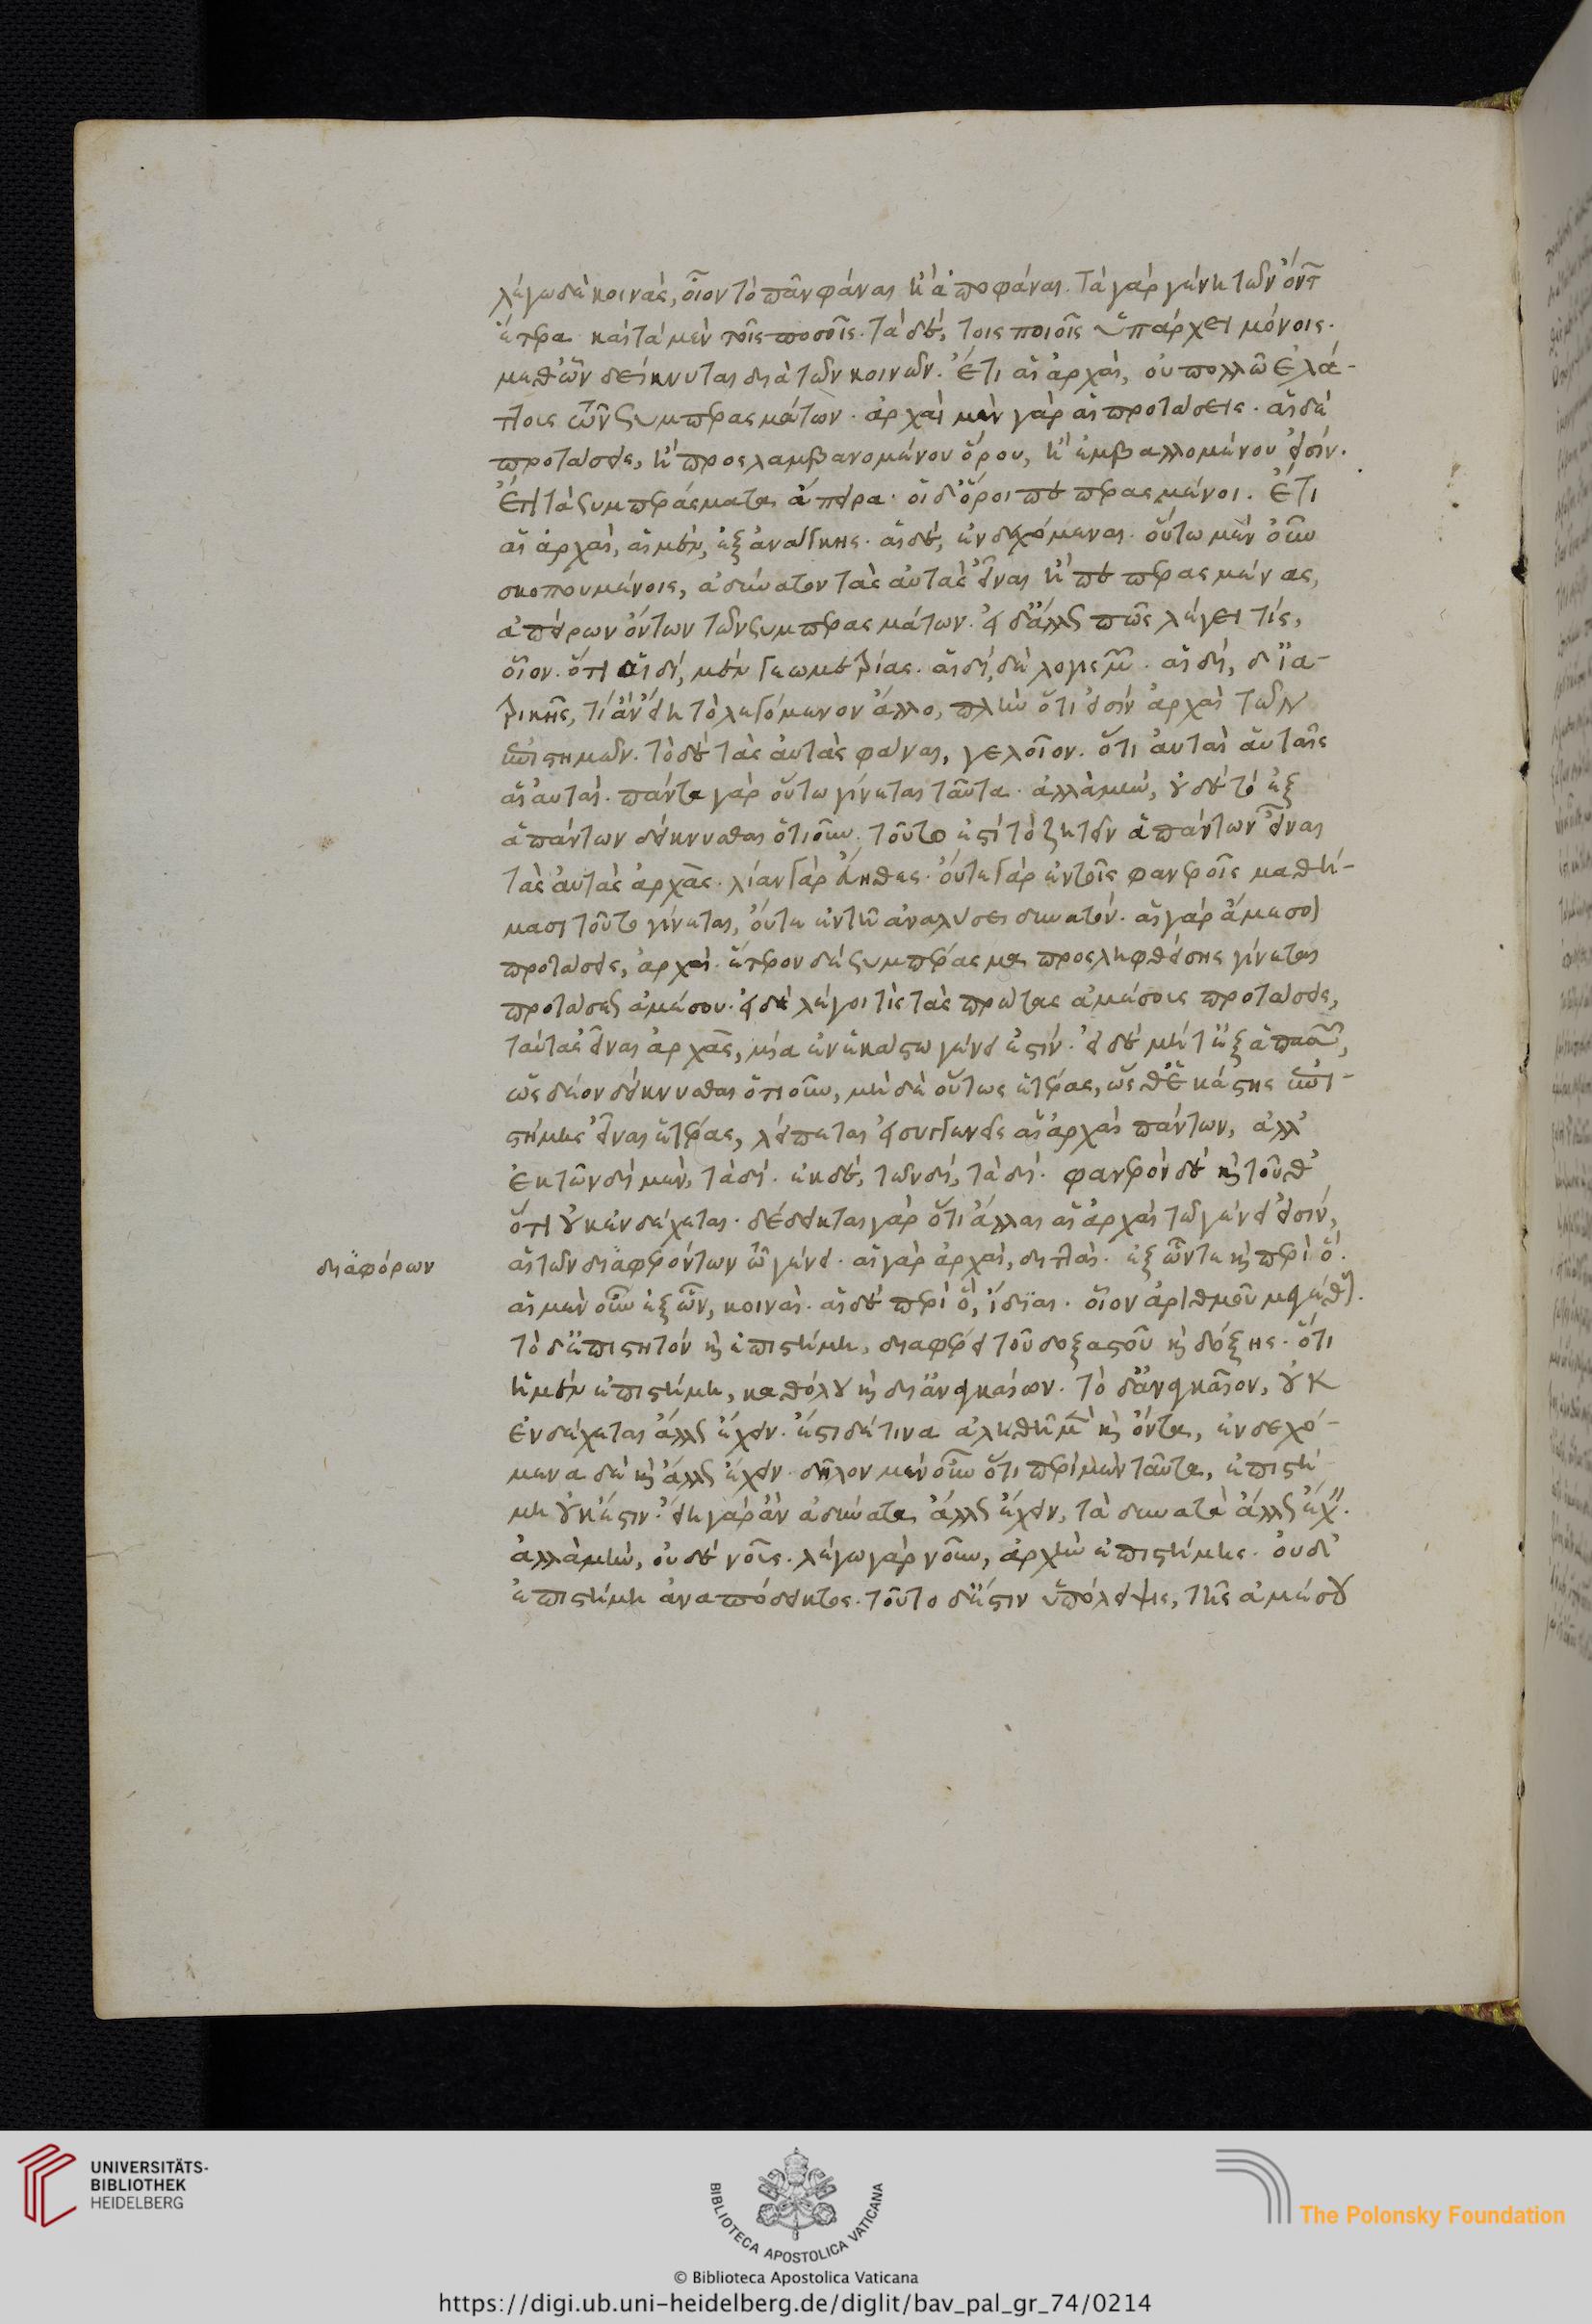 λέγω δὲ κοινὰς, οἷον τὸ πᾶν φάναι ἢ ἀποφάναι. τὰ γὰρ γένη τῶν ὄντ
ἕτερα καὶ τὰ μὲν τοῖς ποσοῖς. τὰ δὲ, τοις ποιοῖς ὑπάρχει μόνοις.
μεθ' ὧν δείκνυται διὰ τῶν κοινῶν. ἔτι αἱ ἀρχαὶ, οὐ πολλῶ ἐλά-
ττους τῶν συμπερασμάτων. ἀρχαὶ μὲν γὰρ αἱ προτάσεις. αἱ δὲ
προτάσεις, ἢ προσλαμβανομένου ὅρου, ἢ ἐμβαλλομένου εἰσίν.
Ἔτι τὰ συμπεράσματα ἄπειρα. οἱ δ' ὅροι πεπερασμένοι. ἔτι
αἱ ἀρχαὶ, αἱ μὲν, ἐξ ἀνάγκης. αἱ δὲ, ἐνδεχόμεναι. οὕτω μὲν οὖν
σκοπουμένοις, ἀδύνατον τὰς αὐτὰς εἶναι ἢ πεπερασμένας,
ἀπείρων ὄντων τῶν συμπερασμάτων. εἰ δ' ἄλλως πῶς λέγει τίς,
οἷον. ὅτι αἱ δὴ, μὲν γεωμετρίας. αἱ δὴ, δὲ λογισμῶν. αἱ δὴ, δ' ἰα-
τρικῆς, τί ἂν εἴη τὸ λεγόμενον ἄλλο, πλὴν ὅτι εἰσὶν ἀρχαὶ τῶν
ἐπιστημῶν. τὸ δὲ τὰς αὐτὰς φάναι, γελοῖον. ὅτι αὐταὶ αὑταῖς
αἱ αὐταί. πάντα γὰρ οὕτω γίνεται ταῦτα. ἀλλὰ μὴν, οὐδὲ τὸ ἐξ
ἁπάντων δείκνυσθαι ὅτιοῦν. τοῦτο ἐστὶ τὸ ζητεῖν ἁπάντων εἶναι
τὰς αὐτὰς ἀρχὰς. λίαν γὰρ εὔηθες. οὔτε γὰρ ἐν τοῖς φανεροῖς μαθή-
μασι τοῦτο γίνεται, οὔτε ἐν τῆ ἀναλύσει δυνατόν. αἱ γὰρ ἄμεσοι
προτάσεις, ἀρχαί. ἕτερον δὲ συμπέρασμα προσληφθείσης γίνεται
προτάσεως ἀμέσου. εἰ δὲ λέγοι τὶς τὰς πρώτας ἀμέσους προτάσεις,
ταύτας εἶναι ἀρχὰς, μία ἐν ἑκάστω γένει ἐστίν. εἰ δὲ μήτ' ἐξ ἁπασῶν,
ὡς δέον δείκνυσθαι ὅτιοῦν, μὴ δὲ οὕτως ἑτέρας, ὡς θ' ἑκάστης ἐπι-
στήμης εἶναι ἑτέρας, λείπεται εἰ συγγενεῖς αἱ ἀρχαὶ πάντων, ἀλλ'
ἐκ τῶν δὴ μὲν, τὰ δὴ. ἐκ δὲ, τῶν δὴ, τὰ δή. φανερὸν δὲ καὶ τοῦθ'
ὅτι οὐκ ἐνδέχεται. δέδεικται γὰρ ὅτι ἄλλαι αἱ ἀρχαὶ τῶ γένει εἰσὶν,
διαφόρων
αἱ τῶν διαφερόντων τῶ γένει. αἱ γὰρ ἀρχαὶ, διτταί. ἐξ ὧν τε καὶ περὶ ὅ.
αἱ μὲν οὖν ἐξ ὧν, κοιναί. αἱ δὲ περὶ ὃ, ἴδιαι. οἷον ἀριθμοῦ μεγέθους.
τὸ δ' ἐπιστητὸν καὶ ἐπιστήμη, διαφέρει τοῦ δοξαστοῦ καὶ δόξης. ὅτι
ἡ μὲν ἐπιστήμη, καθόλου καὶ δι' ἀναγκαίων. τὸ δ' ἀναγκαῖον, οὐκ
ἐνδέχεται ἄλλως ἔχειν. ἔστι δέ τινα ἀληθῆ μὲν καὶ ὄντα, ἐνδεχό-
μενα δὲ καὶ ἄλλως ἔχειν. δῆλον μὲν οὖν ὅτι περὶ μὲν ταῦτα, ἐπιστή-
μη οὐκ ἔστιν. εἴη γὰρ ἂν ἀδύνατα ἄλλως ἔχειν, τὰ δυνατὰ ἄλλως ἔχειν.
ἀλλὰ μὴν, οὐδὲ νοῦς. λέγω γὰρ νοῦν, ἀρχὴν ἐπιστήμης. οὐδ'
ἐπιστήμη ἀναπόδεικτος. τοῦτο δ' ἔστιν ὑπόληψις, τῆς ἀμέσου
UNIVERSITÄTS-
BIBLIOTHEK
HEIDELBERG
BIBLIOTECA APOSTOLICA VATICANA
The Polonsky Foundation
© Biblioteca Apostolica Vaticana
https://digi.ub.uni-heidelberg.de/diglit/bav_pal_gr_74/0214